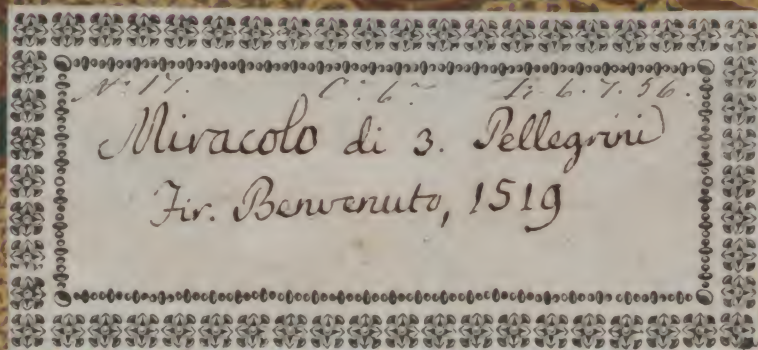 No. 17. C. 6. L. 6. 7. 56.
Miracolo di 3. Pellegrini
Fir. Benvenuto, 1519